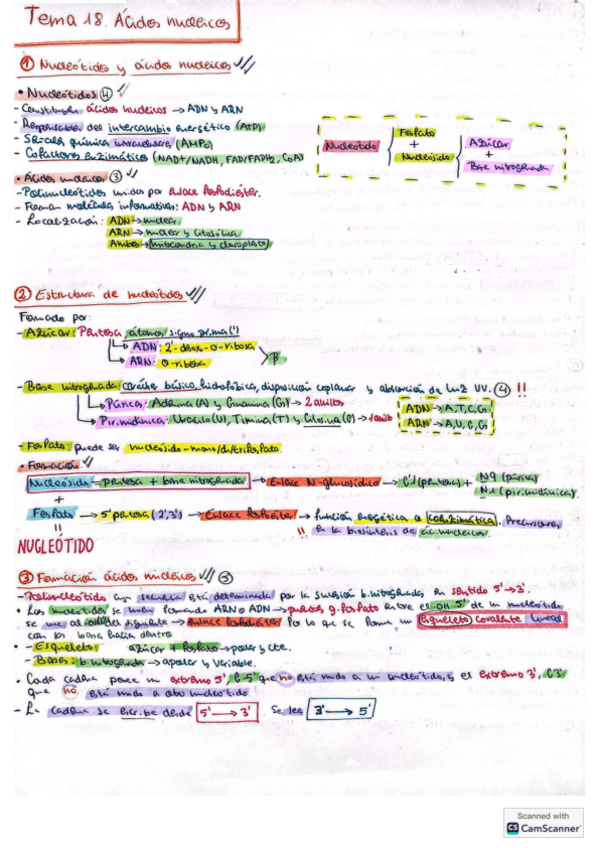 Tema 18. Ácidos nucleicos
① Nucleótidos y ácidos nucleicos
• Nucleótidos ④
- Constituyen ácidos nucleicos → ADN y ARN
- Responsables del intercambio energético (ATP)
- Señales química intracelulares (AMPc)
- Cofactores enzimáticos (NAD+/NADH, FAD/FADH2, CoA)
Nucleótido Fosfato + Nucleósido Azúcar + Base nitrogenada
• Ácidos nucleicos ③
- Polinucleótidos unidos por enlace fosfodiéster.
- Forman moléculas informativas: ADN y ARN
- Localización: ADN → nuclear
ARN → nuclear y citosólica
Ambos → mitocondria y cloroplasto
② Estructura de nucleótidos
Formado por:
- Azúcar: Pentosa, átomos signo prima (')
→ ADN: 2'-desoxi-D-ribosa
→ ARN: D-ribosa
β
- Base nitrogenada: carácter básico, hidrofóbica, disposición coplanar y absorción de luz UV. ④ !!
→ Púrica: Adenina (A) y Guanina (G) → 2 anillos
→ Pirimidínica: Uracilo (U), Timina (T) y Citosina (C) → 1 anillo
ADN → A,T,C,G
ARN → A,U,C,G
- Fosfato: puede ser nucleósido-mono/di/trifosfato.
• Formación
Nucleósido = pentosa + base nitrogenada → Enlace N-glucosídico → C1'(pentosa) + N9 (púrica)
N1 (pirimidínica).
+
Fosfato → 5' pentosa (2',3') → Enlace fosfoéster → función energética o coenzimática. Precursores
!! en la biosíntesis de ác. nucleicos.
!!
NUCLEÓTIDO
③ Formación ácidos nucleicos ⑤
- Polinucleótido cuya secuencia está determinada por la sucesión b. nitrogenadas en sentido 5'→3'.
• Los nucleótidos se unen formando ARN o ADN → g. fosfato entre el -OH 5' de un nucleótido
se une al del siguiente → Enlace fosfodiéster. Por lo que se forma un esqueleto covalente lineal
con las bases hacia dentro
• - Esqueleto: azúcar + fosfato → polar y cte.
- Bases: b. nitrogenada → apolar y variable.
• Cada cadena posee un extremo 5', C-5' que no está unido a un nucleótido, y el extremo 3', C3'
que no está unido a otro nucleótido
- La cadena se escribe desde 5' → 3'. Se lee 3' → 5'
Scanned with
CS CamScanner